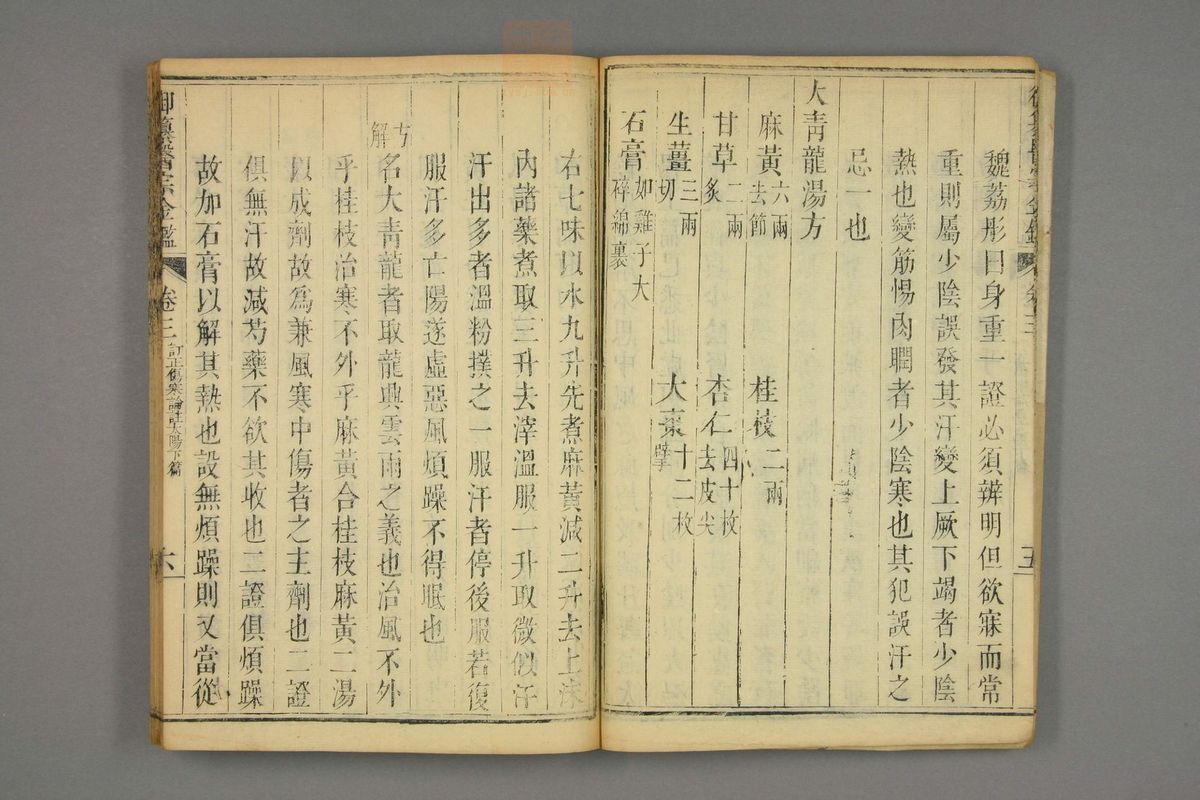 魏荔彤曰身重一證必須辨明但欲寐而常
重則屬少陰誤發其汗變上厥下竭者少陰
熱也變筋惕肉瞤者少陰寒也其犯誤汗之
忌一也
大青龍湯方
麻黃六兩去節 桂枝二兩
甘草二兩炙 杏仁四十枚去皮尖
生薑三兩切 大棗十二枚擘
石膏如雞子大碎綿裹
右七味以水九升先煮麻黃減二升去上沫
內諸藥煮取三升去滓溫服一升取微似汗
汗出多者溫粉撲之一服汗者停後服若復
服汗多亡陽遂虛惡風煩躁不得眠也
方解
名大青龍者取龍興雲雨之義也治風不外
乎桂枝治寒不外乎麻黃合桂枝麻黃二湯
以成劑故為兼風寒中傷者之主劑也二證
俱無汗故減芍藥不欲其收也二證俱煩躁
故加石膏以解其熱也設無煩躁則又當從
御纂醫宗金鑑 卷三 訂正傷寒論註太陽下篇 六